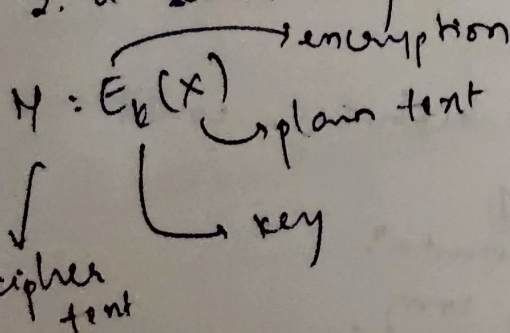 encryption
Y = E_k (X)
plain text
key
cipher
text